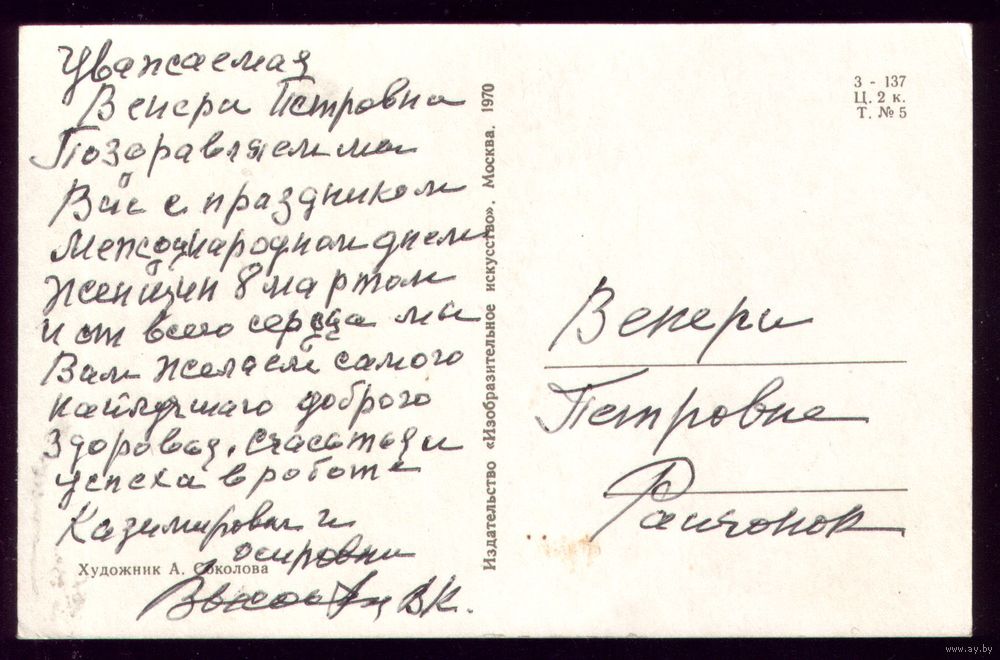 Уважаемая
Венера Петровна
Поздравляем мы
Вас с праздником
Международном днем
Женщин 8 мартом
и от всего сердца мы
Вам желаем самого
наилучшаго доброго
Здоровья, счастья и
успеха в работе
Казимировы и
Художник А. Соколова
В.К.
Издательство «Изобразительное искусство». Москва. 1970
3 - 137
Ц. 2 к.
Т. № 5
Венери
Петровне
www.ay.by